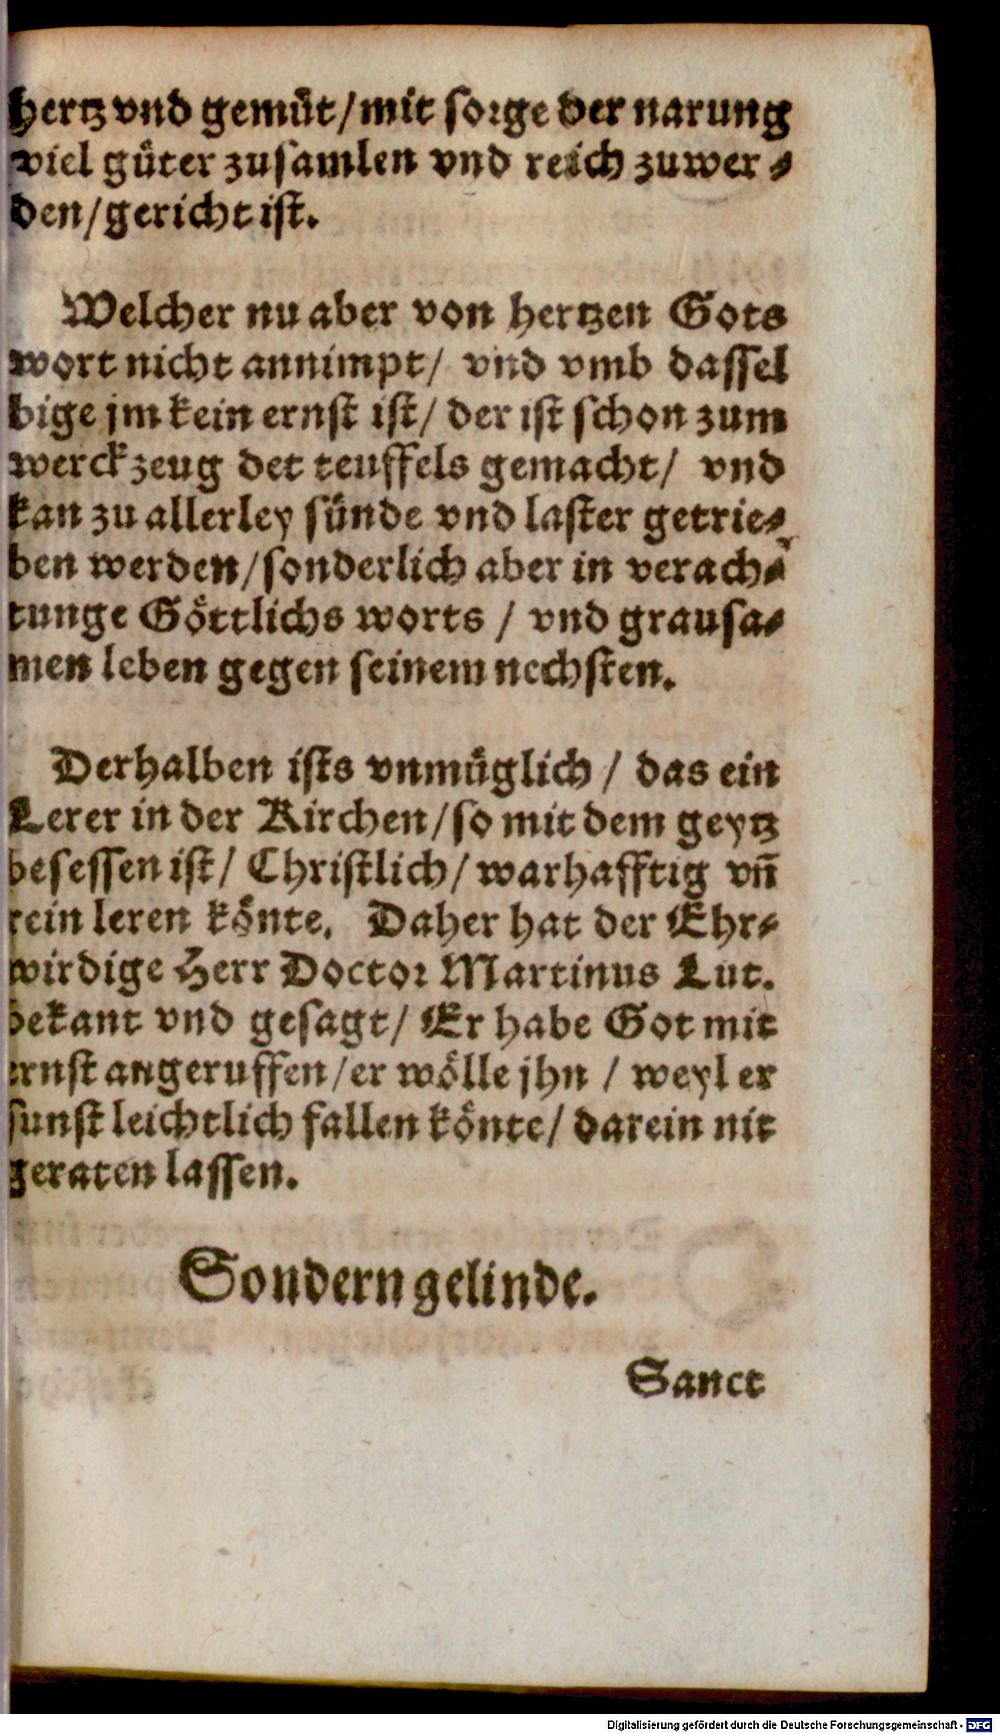 hertz vnd gemüt/mit sorge der narung
viel güter zusamlen vnd reich zuwer⸗
den/gericht ist.
Welcher nu aber von hertzen Gots
wort nicht annimpt/ vnd vmb dassel
bige jm kein ernst ist/ der ist schon zum
werckzeug det teuffels gemacht/ vnd
kan zu allerley sünde vnd laster getrie⸗
ben werden/sonderlich aber in verach⸗
tunge Göttlichs worts / vnd grausa⸗
men leben gegen seinem nechsten.
Derhalben ists vnmüglich / das ein
Lerer in der Kirchen/so mit dem geytz
besessen ist/ Christlich/ warhafftig vn̄
rein leren könte. Daher hat der Ehr⸗
wirdige Herr Doctor Martinus Lut.
bekant vnd gesagt/ Er habe Got mit
ernst angeruffen/er wölle jhn / weyl er
sunst leichtlich fallen könte/ darein nit
geraten lassen.
Sondern gelinde.
Sanct
Digitalisierung gefördert durch die Deutsche Forschungsgemeinschaft - DFG